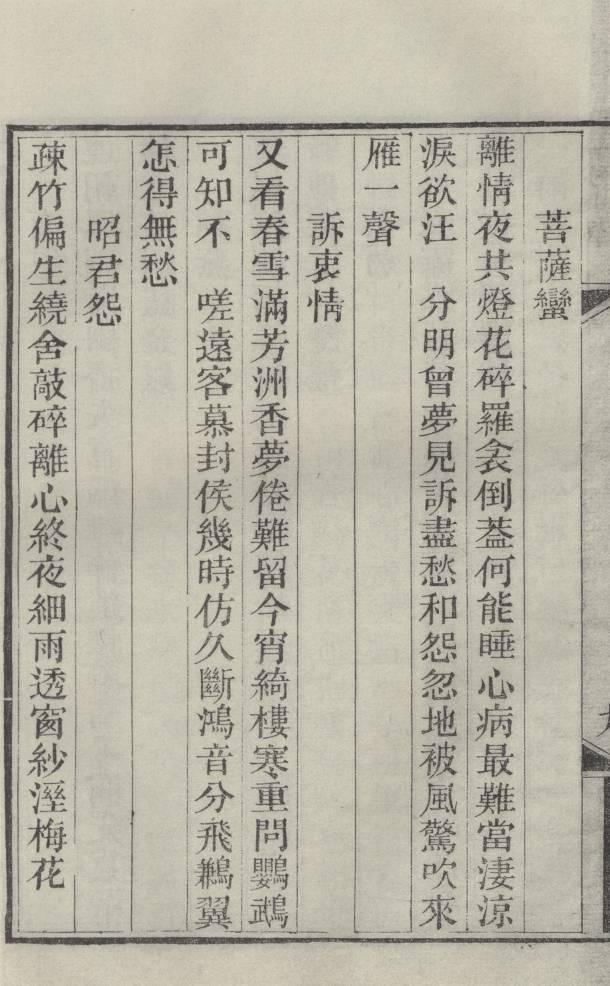 菩薩蠻
離情夜共燈花碎羅衾倒葢何能睡心病最難當淒涼
淚欲汪　分明曾夢見訴盡愁和怨忽地被風驚吹來
雁一聲
訴衷情
又看春雪滿芳洲香夢倦難留今宵綺樓寒重問鸚鵡
可知不　嗟遠客慕封侯幾時仿久斷鴻音分飛鶼翼
怎得無愁
昭君怨
疎竹偏生繞舍敲碎離心終夜細雨透窗紗溼梅花